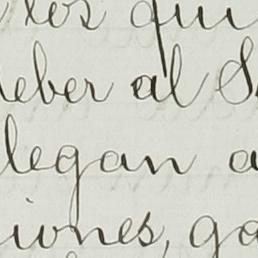 les qui
eber al S
legan a
iones, ga